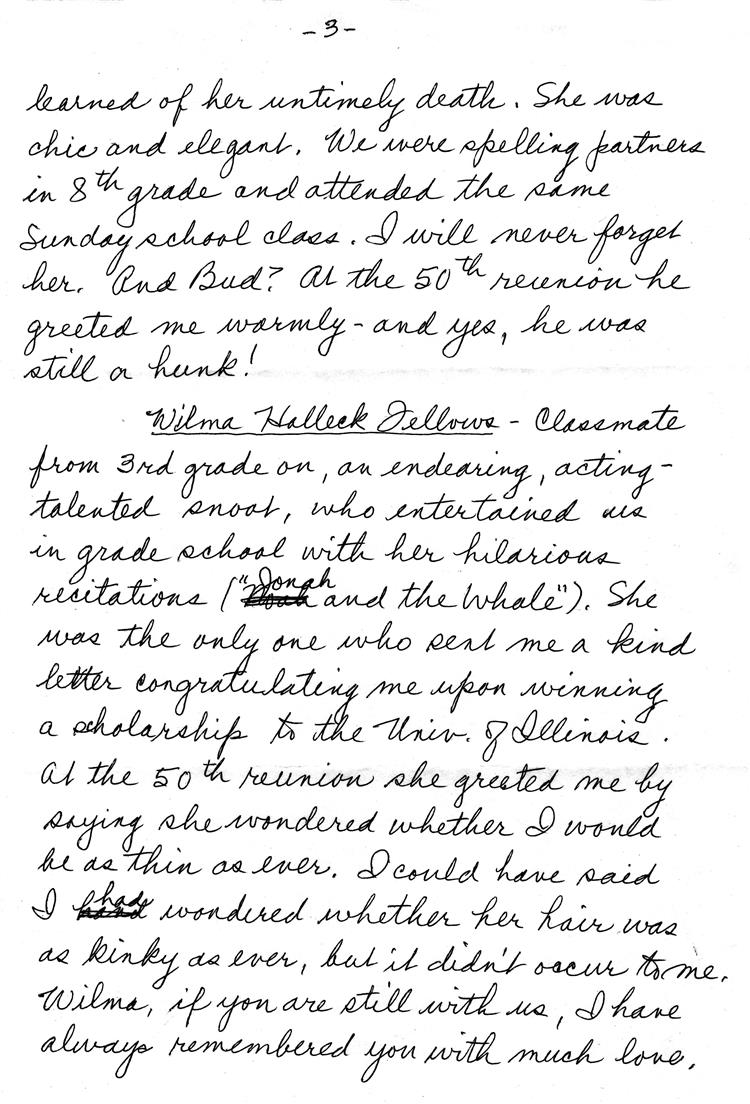 -3-
learned of her untimely death. She was
chic and elegant. We were spelling partners
in 8th grade and attended the same
Sunday school class. I will never forget
her. And Bud? At the 50th reunion he
greeted me warmly - and yes, he was
still a hunk!
Wilma Halleck Fellows - Classmate
from 3rd grade on, an endearing, acting-
talented snoot, who entertained us
in grade school with her hilarious
recitations ("Jonah and the Whale"). She
was the only one who sent me a kind
letter congratulating me upon winning
a scholarship to the Univ. of Illinois.
At the 50th reunion she greeted me by
saying she wondered whether I would
be as thin as ever. I could have said
I had wondered whether her hair was
as kinky as ever, but it didn't occur to me.
Wilma, if you are still with us, I have
always remembered you with much love.